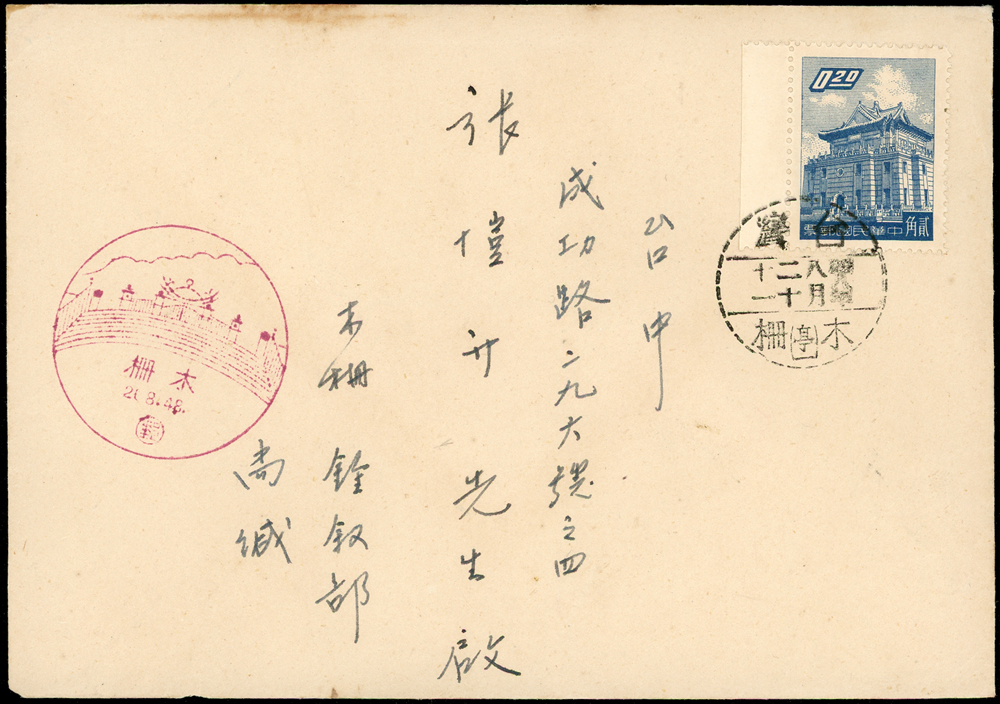 0.20
貳角
中華民國郵票
台灣
八月
二十
十一
木柵
亭一
台中
成功路二九六號之四
張愷升先生啟
木柵 銓叙部
尚緘
木柵
8.48.